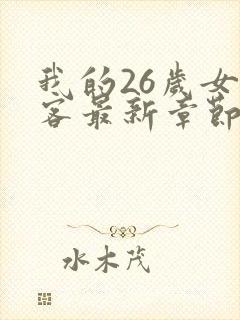 我的26歲女
客最新章節
水木茂